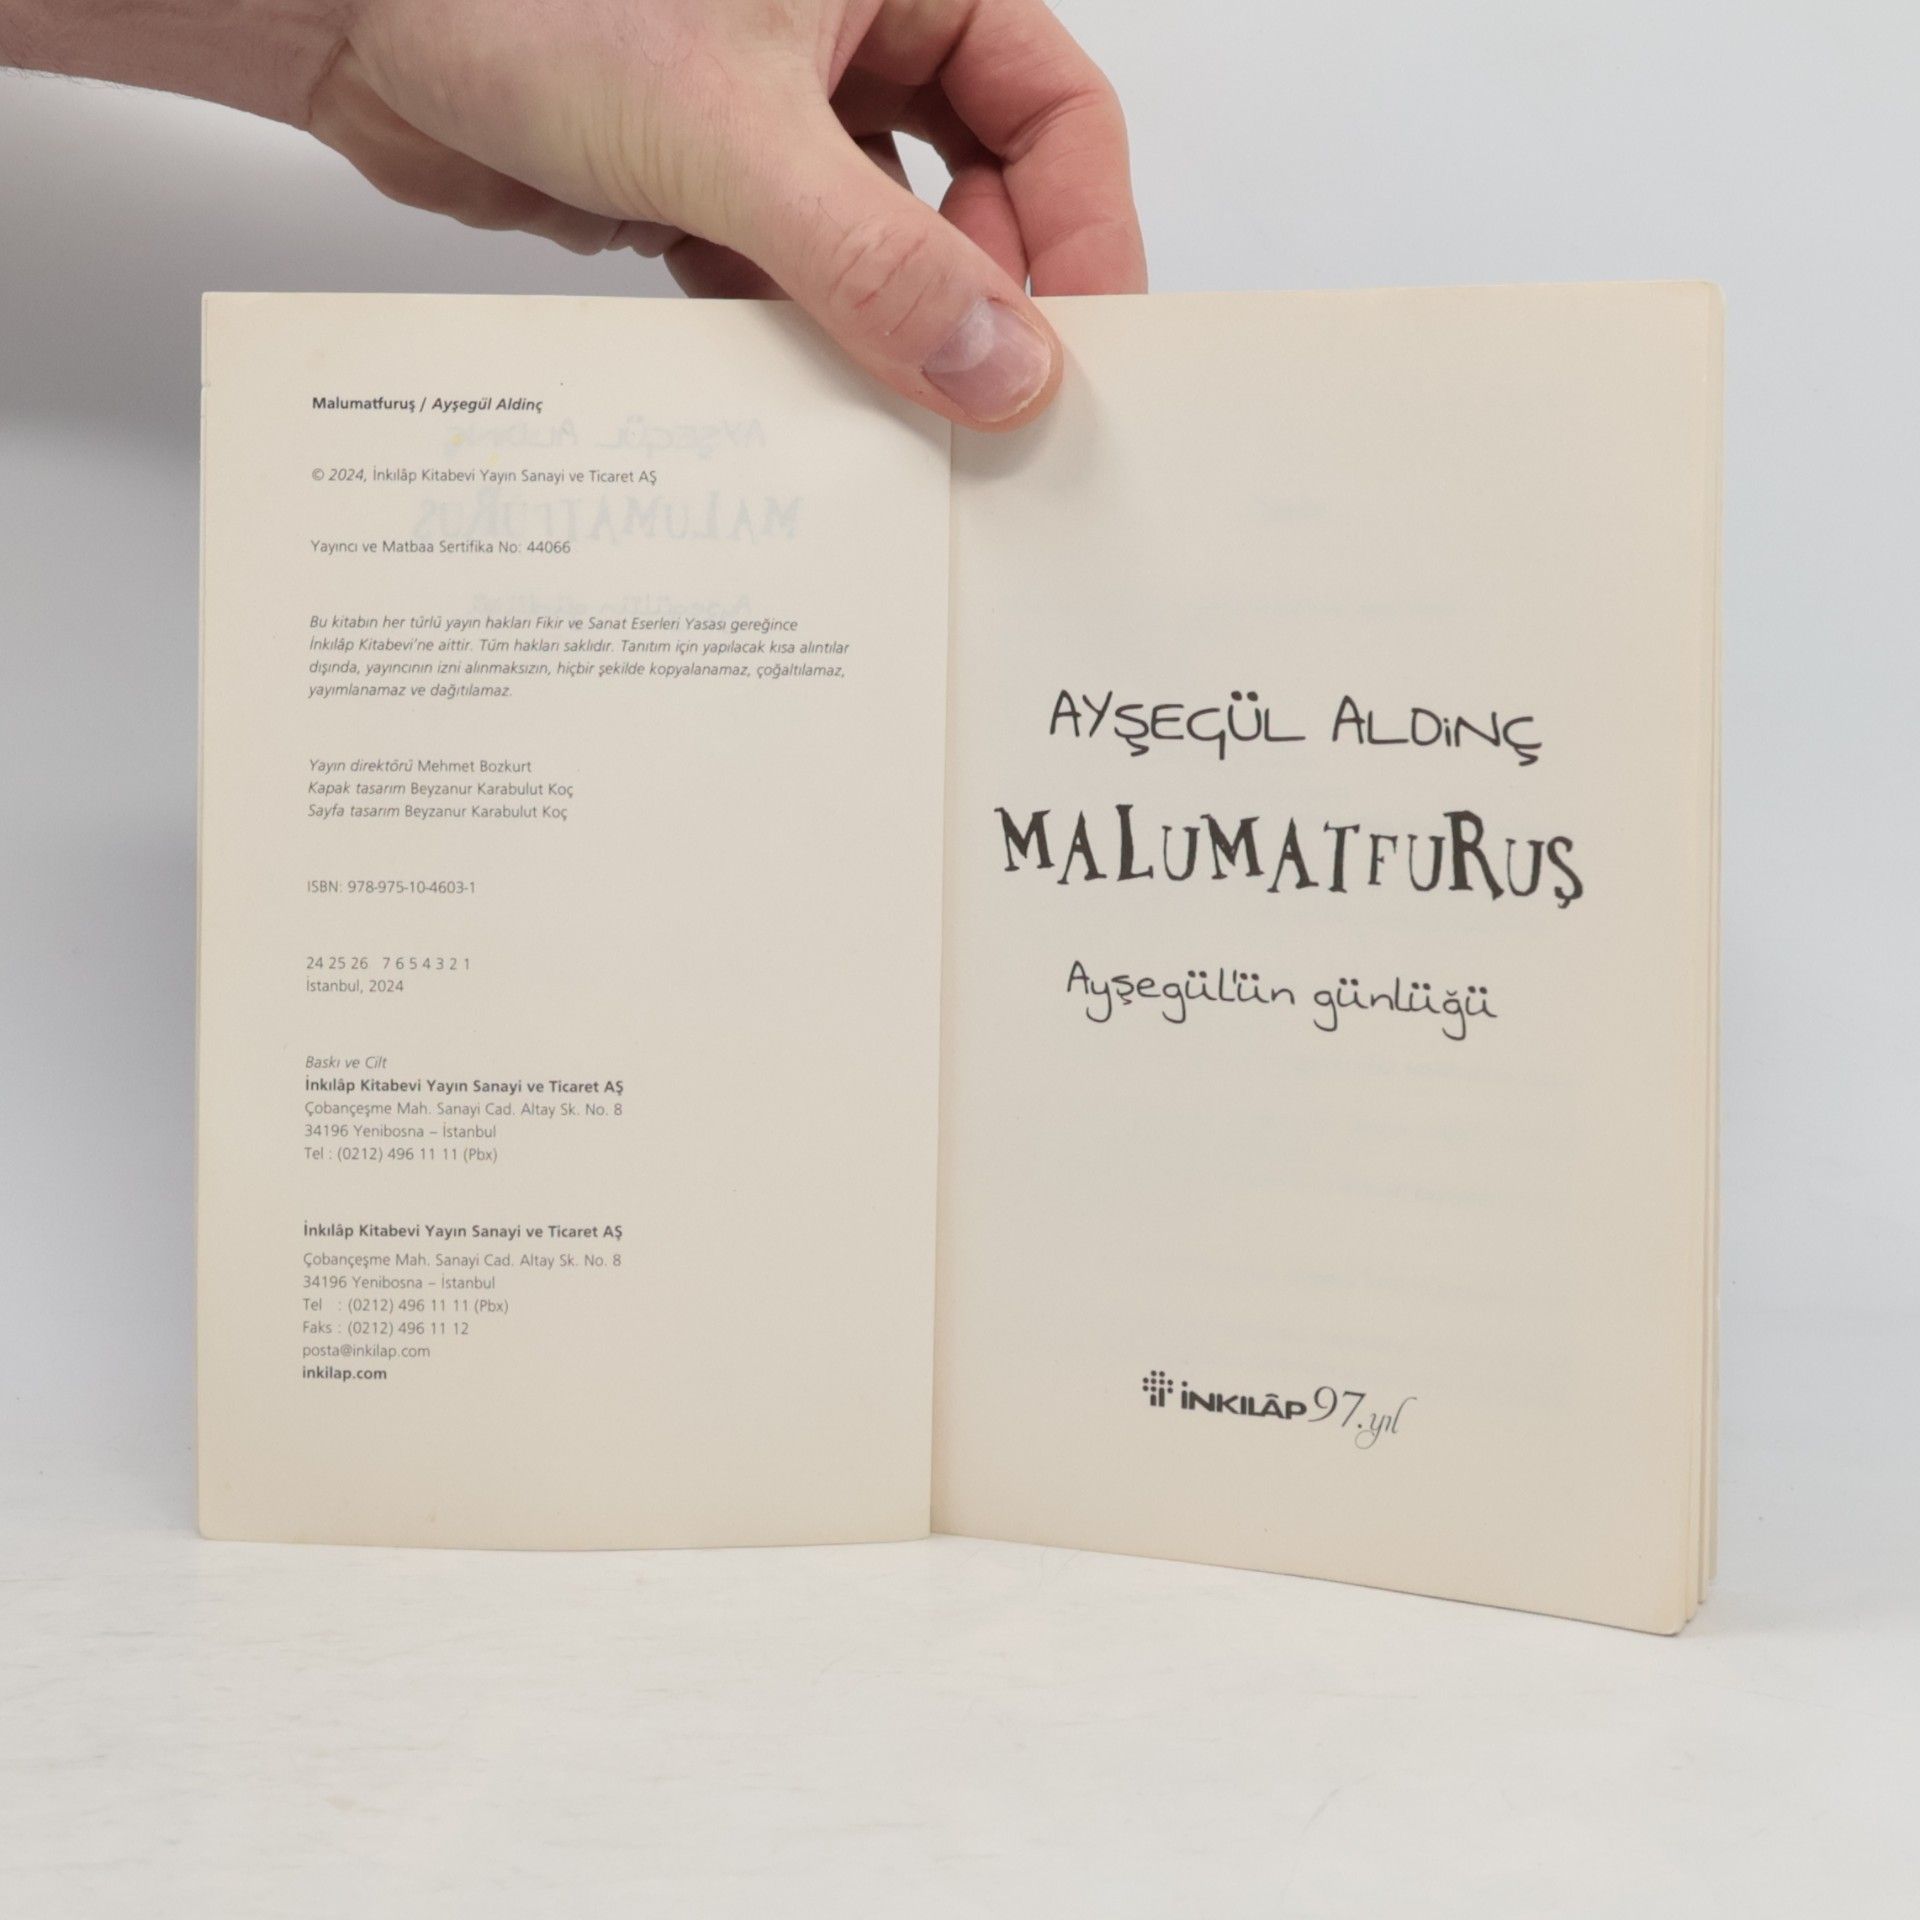 Malumatfuruş / Ayşegül Aldinç
© 2024, İnkılâp Kitabevi Yayın Sanayi ve Ticaret AŞ
Yayıncı ve Matbaa Sertifika No: 44066
Bu kitabın her türlü yayın hakları Fikir ve Sanat Eserleri Yasası gereğince
İnkılâp Kitabevi'ne aittir. Tüm hakları saklıdır. Tanıtım için yapılacak kısa alıntılar
dışında, yayıncının izni alınmaksızın, hiçbir şekilde kopyalanamaz, çoğaltılamaz,
yayımlanamaz ve dağıtılamaz.
Yayın direktörü Mehmet Bozkurt
Kapak tasarım Beyzanur Karabulut Koç
Sayfa tasarım Beyzanur Karabulut Koç
ISBN: 978-975-10-4603-1
24 25 26 7 6 5 4 3 2 1
İstanbul, 2024
Baskı ve Cilt
İnkılâp Kitabevi Yayın Sanayi ve Ticaret AŞ
Çobançeşme Mah. Sanayi Cad. Altay Sk. No. 8
34196 Yenibosna – İstanbul
Tel : (0212) 496 11 11 (Pbx)
İnkılâp Kitabevi Yayın Sanayi ve Ticaret AŞ
Çobançeşme Mah. Sanayi Cad. Altay Sk. No. 8
34196 Yenibosna – İstanbul
Tel : (0212) 496 11 11 (Pbx)
Faks : (0212) 496 11 12
posta@inkilap.com
inkilap.com
AYŞEGÜL ALDİNÇ
MALUMATFURUŞ
Ayşegül'ün günlüğü
İNKILÂP 97.yıl